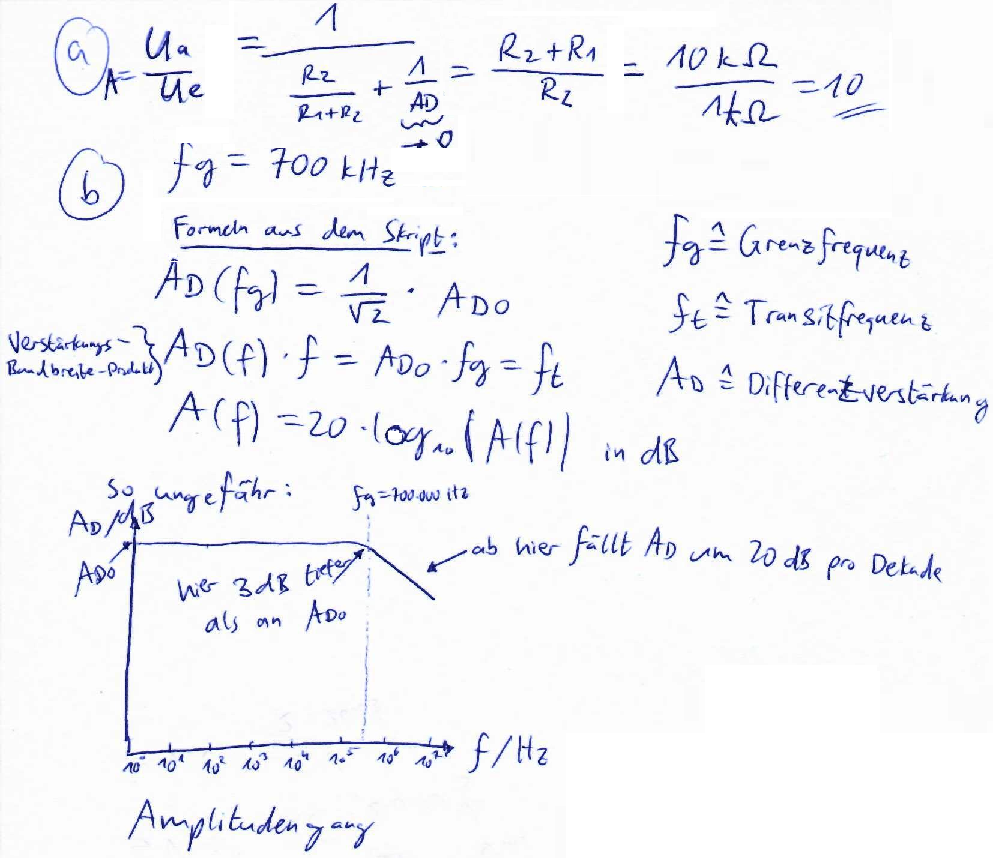 a) A = Ua/Ue = 1/(R2/(R1+R2) + 1/AD) = (R2+R1)/R2 = 10 kΩ/1kΩ = 10
→ 0
b) fg = 700 kHz
Formeln aus dem Skript:
AD(fg) = 1/√2 · AD0
Verstärkungs-
Bandbreite-Produkt } AD(f) · f = AD0 · fg = ft
A(f) = 20 · log10 (A(f)) in dB
fg ≙ Grenzfrequenz
ft ≙ Transitfrequenz
AD ≙ Differenzverstärkung
So ungefähr:
fg=700.000 Hz
AD/dB
AD0
hier 3 dB tiefer
als an AD0
ab hier fällt AD um 20 dB pro Dekade
10¹ 10² 10³ 10⁴ 10⁵ 10⁶ 10⁷ f/Hz
Amplitudengang